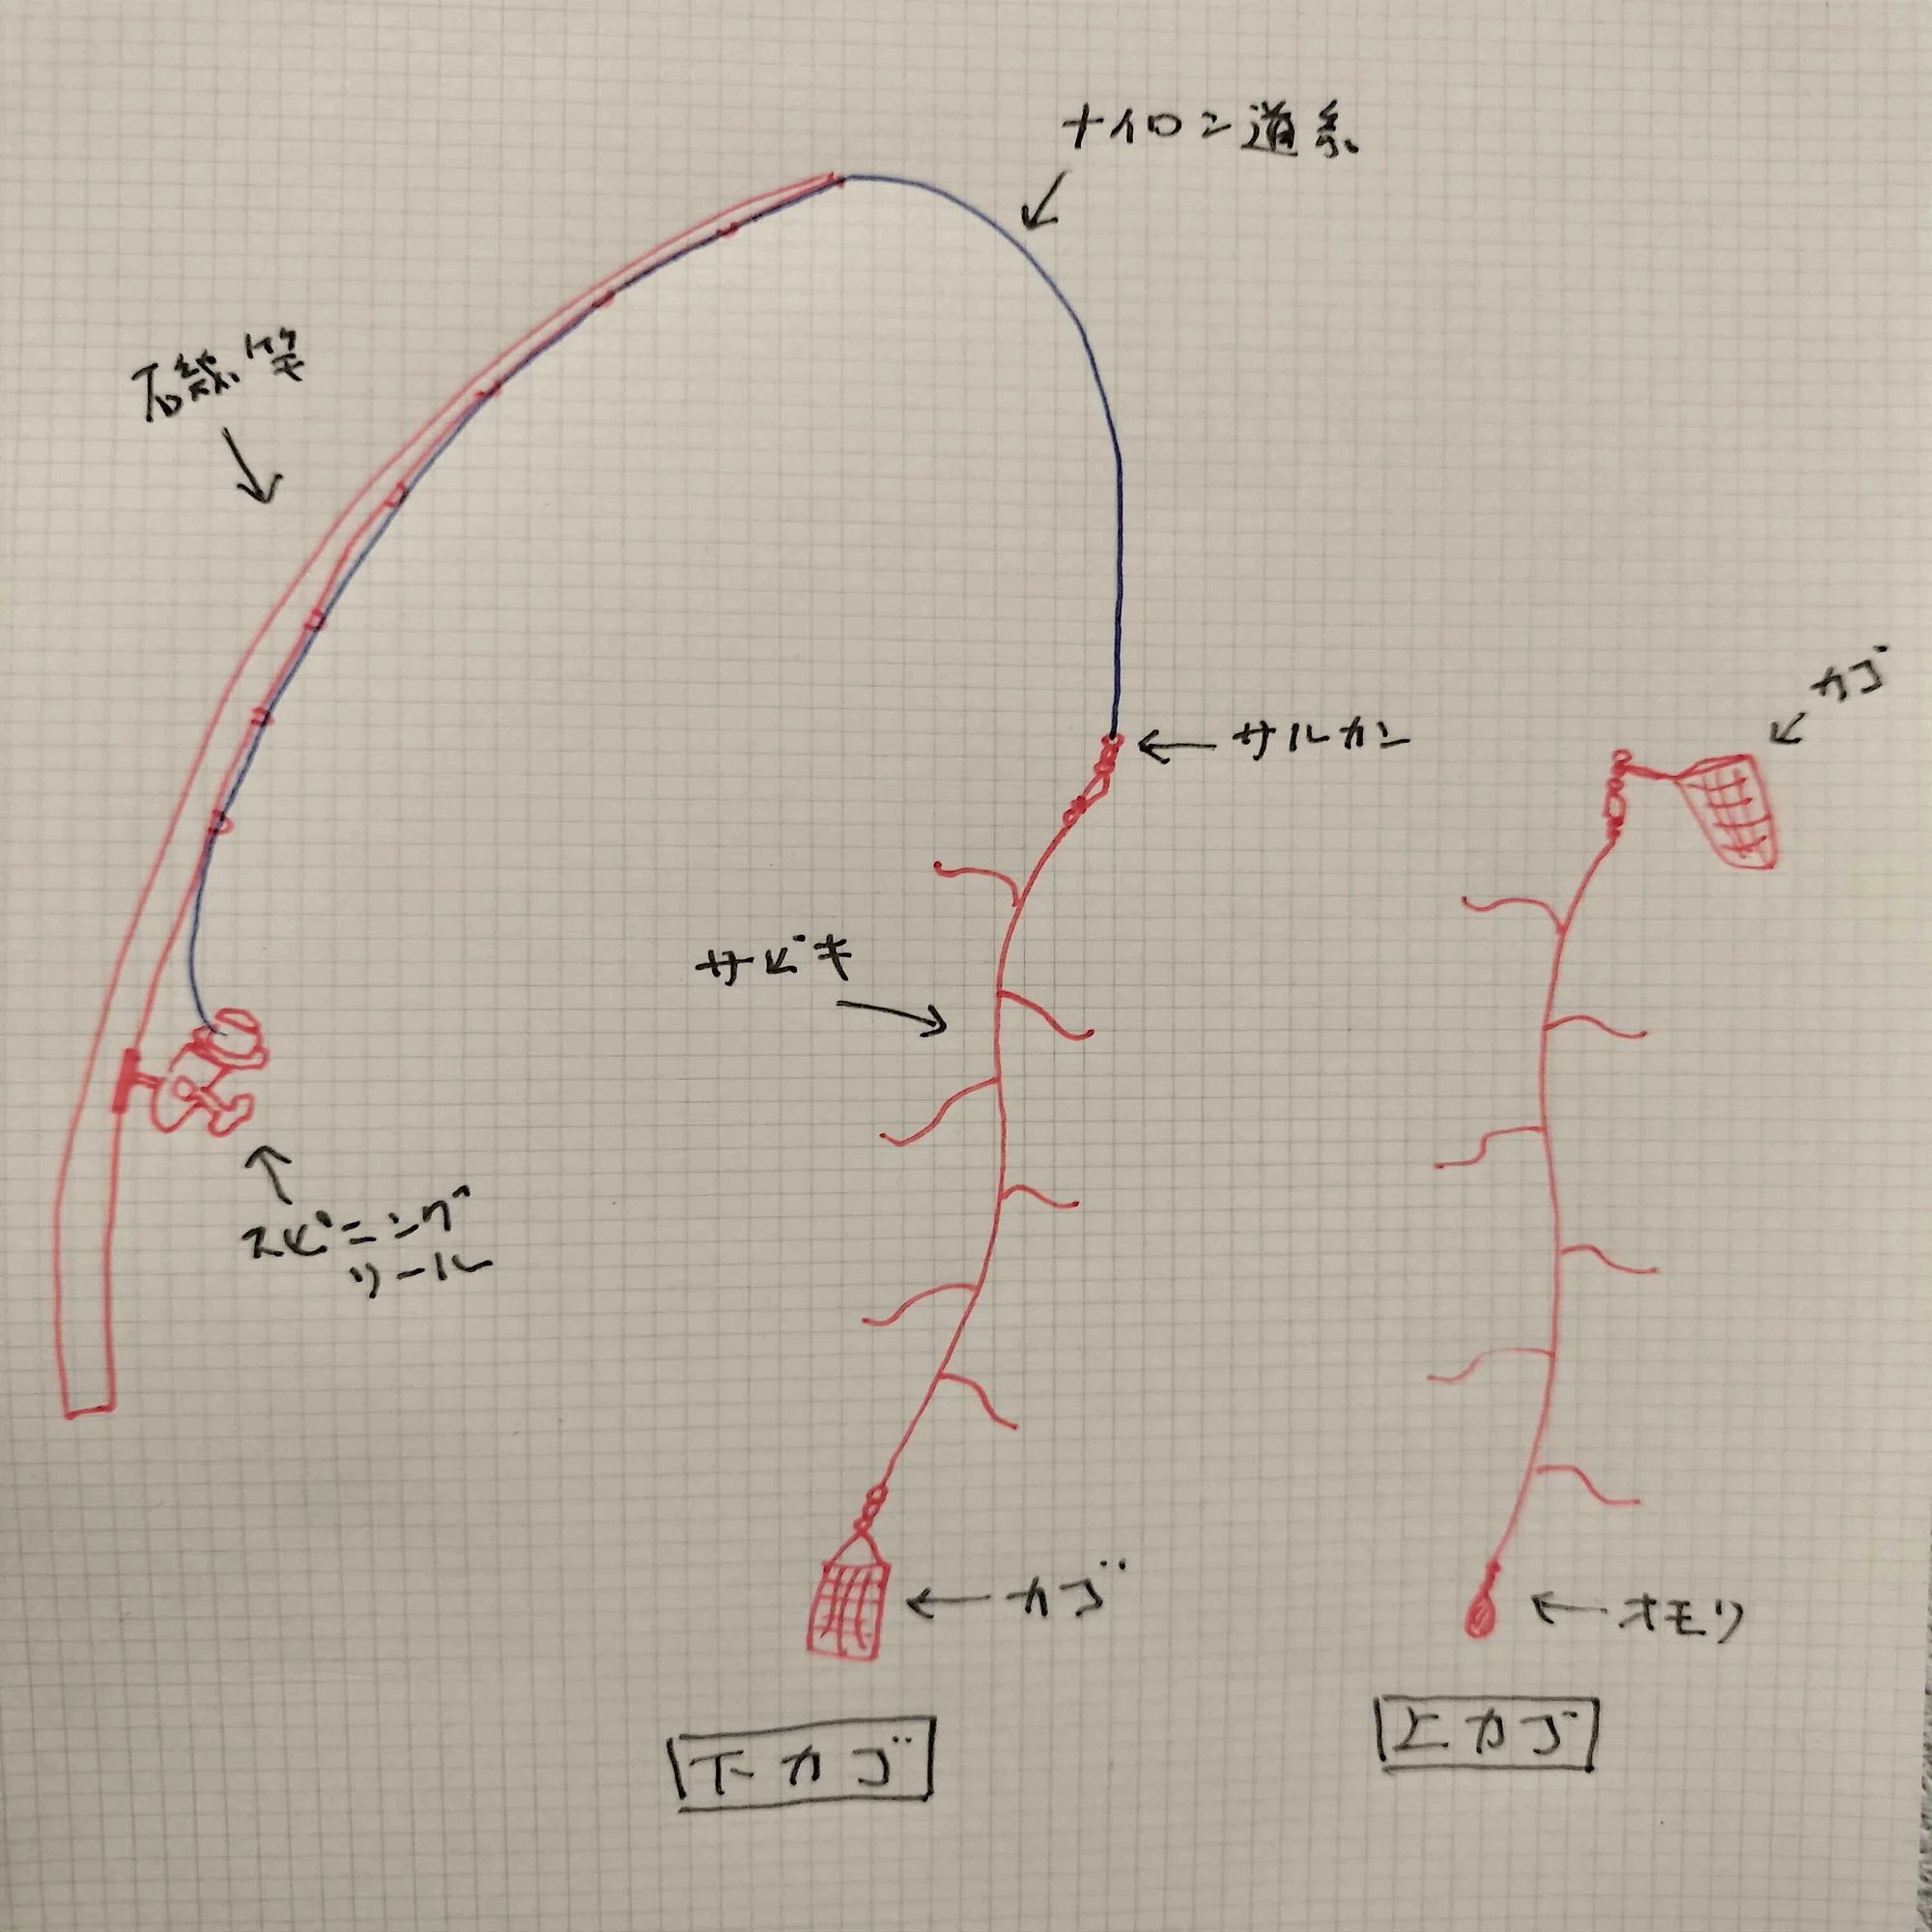 ナイロン道糸
石鯛竿
カゴ
サルカン
サビキ
スピニング
リール
カゴ
オモリ
下カゴ
上カゴ